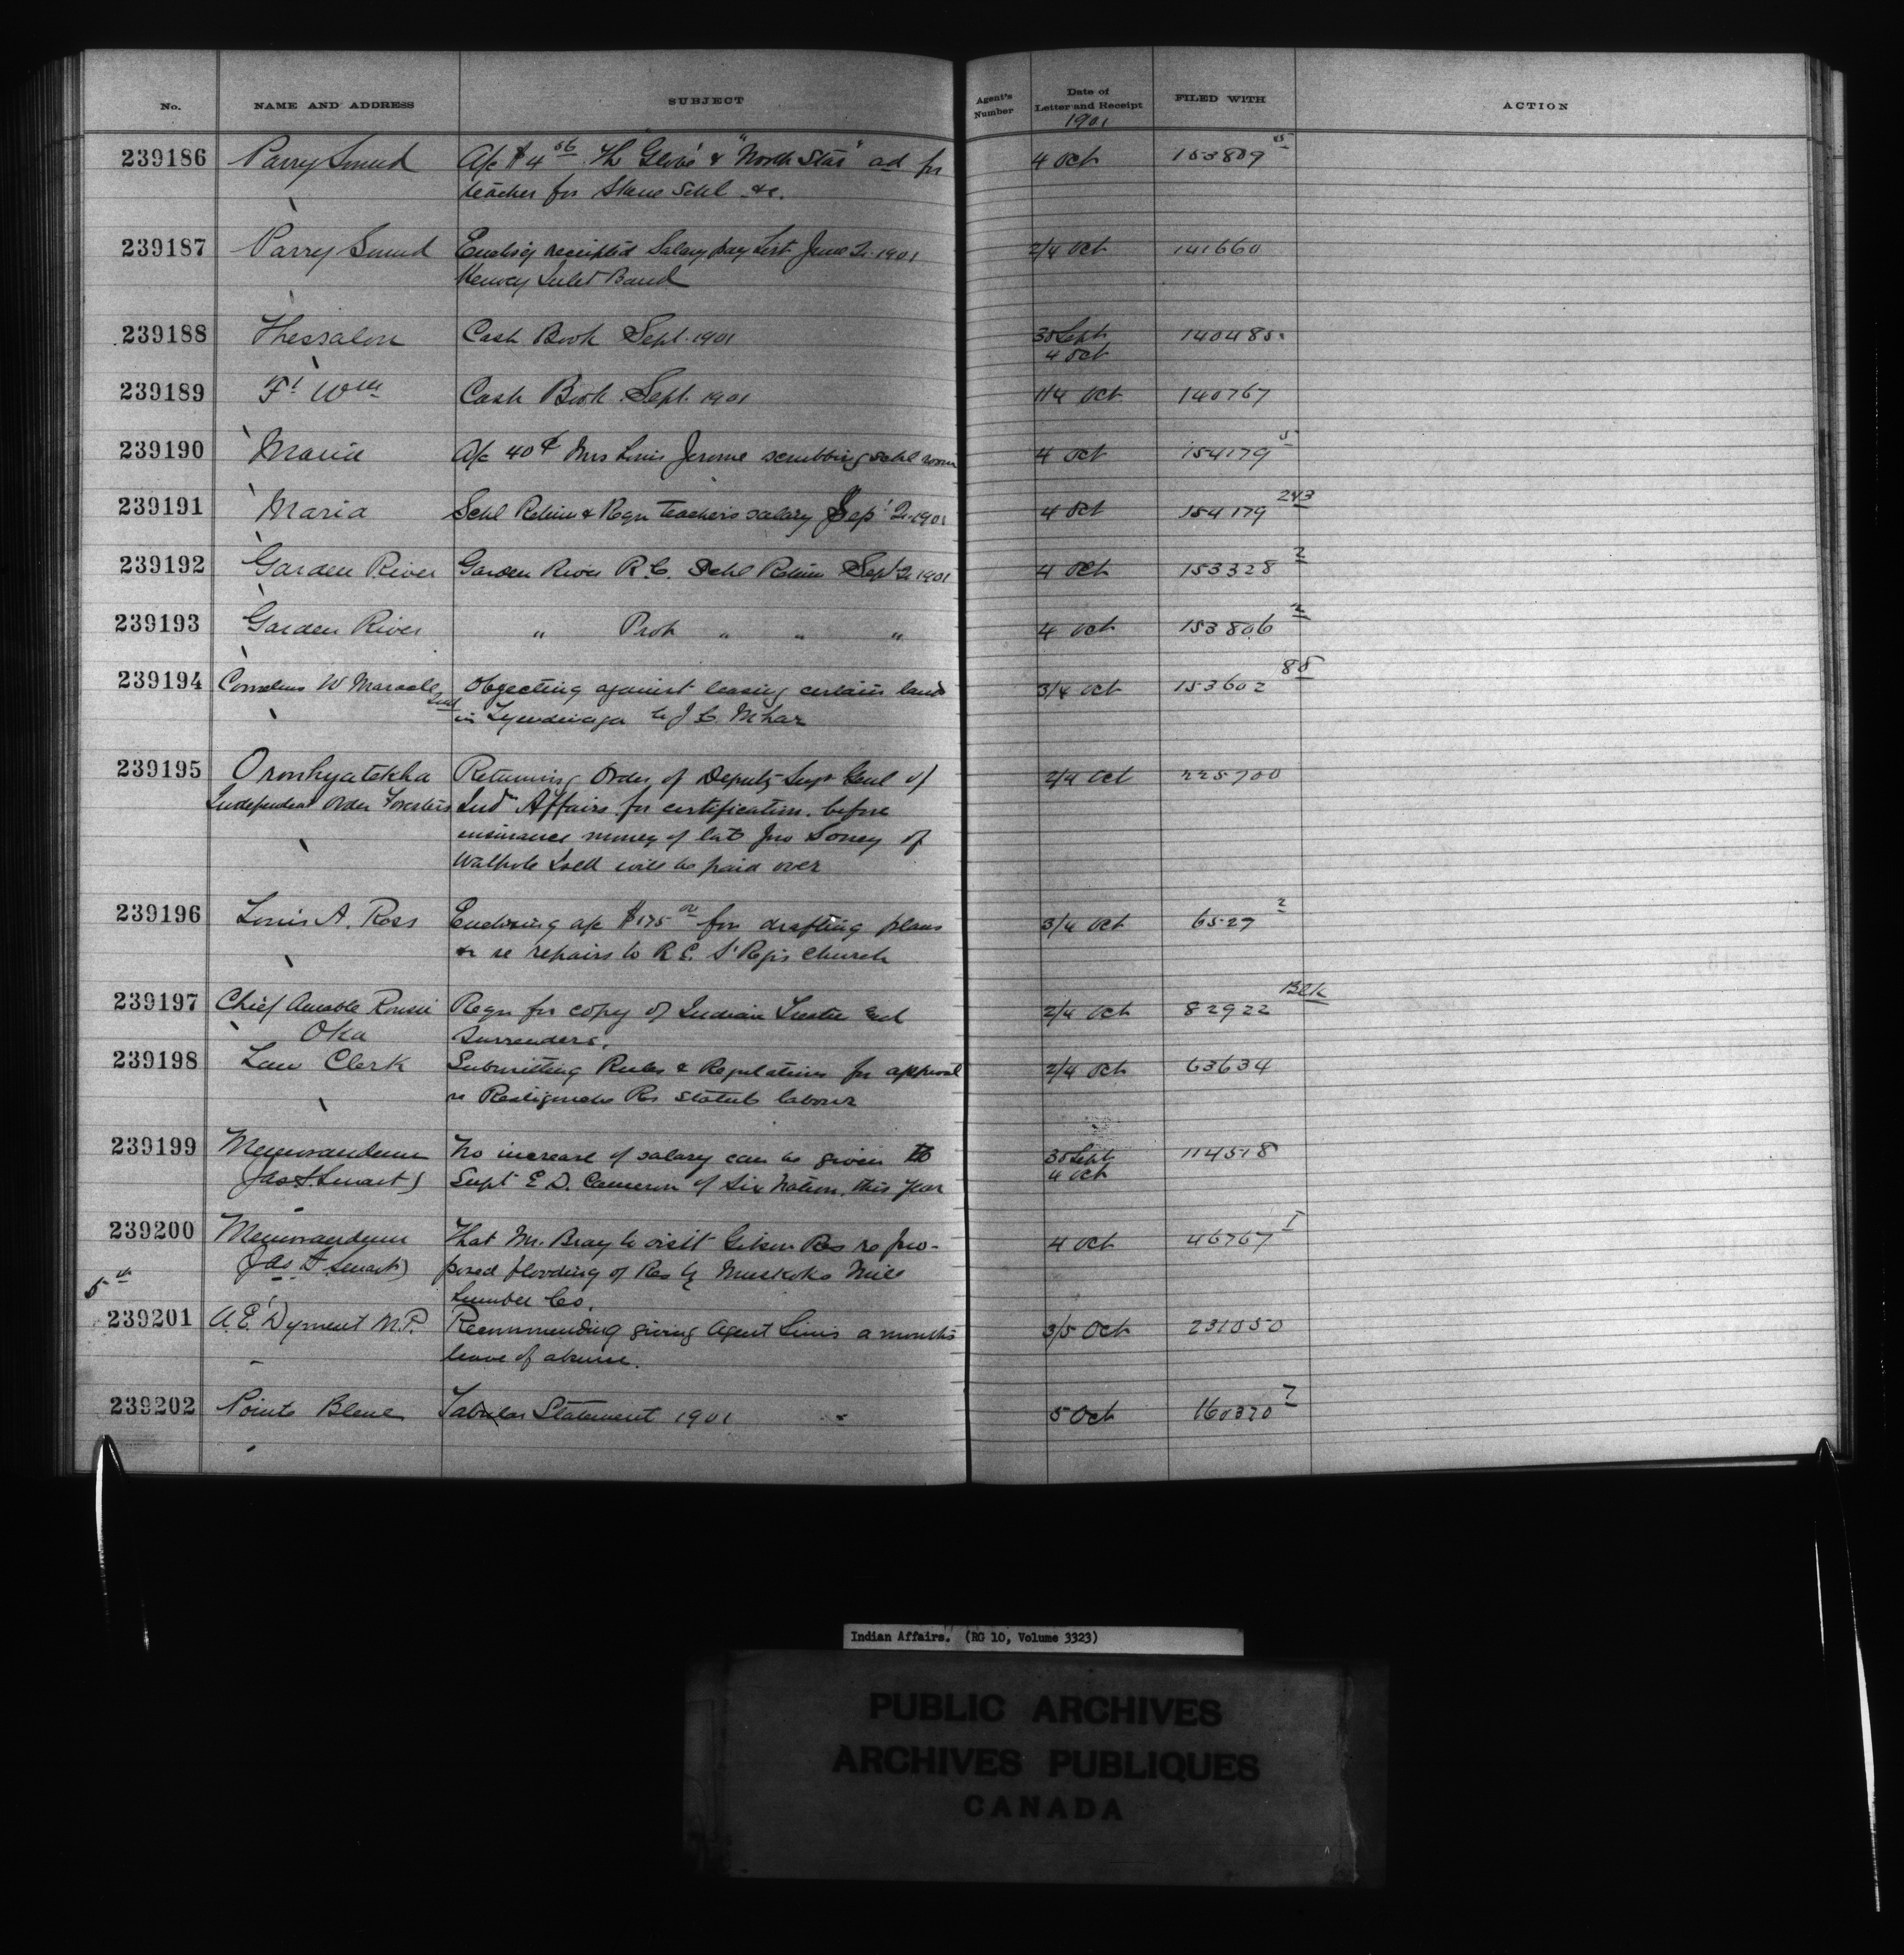 No. NAME AND ADDRESS SUBJECT Agent's Number Date of Letter and Receipt FILED WITH ACTION
1901
239186 Parry Sound A/c $4 56 The "Globe" & "North Star" ad for 4 Oct 153809 65
teacher for Skene Schl &c.
239187 Parry Sound Enclos'g receipted Salary pay list June Qr 1901 2/4 Oct 141660
Henvey Inlet Band
239188 Thessalon Cash Book Sept. 1901 30 Sept 140485
4 Oct
239189 Ft Wm Cash Book Sept. 1901 1/4 Oct 140767
239190 Maria A/c 40¢ Mrs Louis Jerome scrubbing schl room 4 Oct 154179
239191 Maria Schl Return & Reqn teachers salary Sep' Qr 1901 4 Oct 154179 243
239192 Garden River Garden River R.C. Schl Return Sept Qr 1901 4 Oct 153328 2
239193 Garden River " Prot " " " 4 Oct 153806 12
239194 Cornelius W Maracle Objecting against leasing certain land 3/4 Oct 153602 85
in Tyendinaga to J C
239195 Oronhyatekha Returning Order of Deputy Supt Genl of 2/4 Oct 225700
Independent Order Foresters Ind Affairs for certification before
insurance money of late Jno Soney of
Walpole Isld will be paid over
239196 Louis A. Ross Enclosing a/c $175 00 for drafting plans 3/4 Oct 6527 2
& re repairs to R.C. St Regis Church
239197 Chief Amable Reqn for copy of Indian 2/4 Oct 82922 Blk
Oka Surrenders.
239198 Law Clerk Submitting Rules & Regulations for approval 2/4 Oct 63634
re Restigouche Res statute labour
239199 Memorandum No increase of salary can be given to 30 Sept 114518
Jas A. Smart) Supt E D. Cameron of Six Nation. this year 4 Oct
239200 Memorandum That Mr. Bray to visit Gibson Res re pro- 4 Oct 46767 1
Jas A Smart) posed flooding of Res by Muskoka Mill
5th Lumber Co.
239201 A.E. Dyment M.P. Recommending giving Agent Sims a months 3/5 Oct 231050
leave of absence.
239202 Pointe Bleue Tabular Statement 1901 5 Oct 160370 7
Indian Affairs. (RG 10, Volume 3323)
PUBLIC ARCHIVES
ARCHIVES PUBLIQUES
CANADA